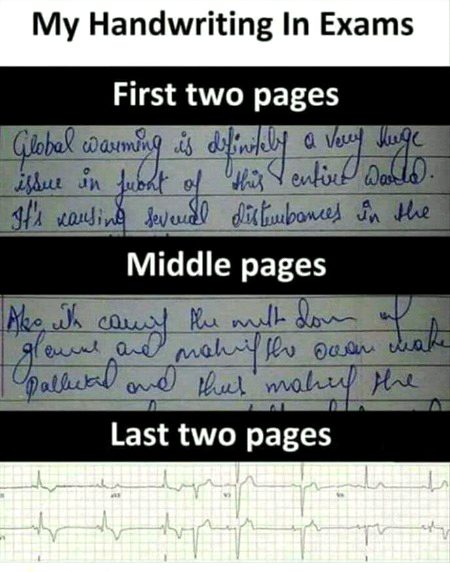 My Handwriting In Exams
First two pages
Global warming is definitely a very huge
issue in front of this entire World.
It's causing several disturbances in the
Middle pages
Also its causing the melt down of
and making the ocean water
polluted and thus making the
Last two pages
aVR
V1
V4